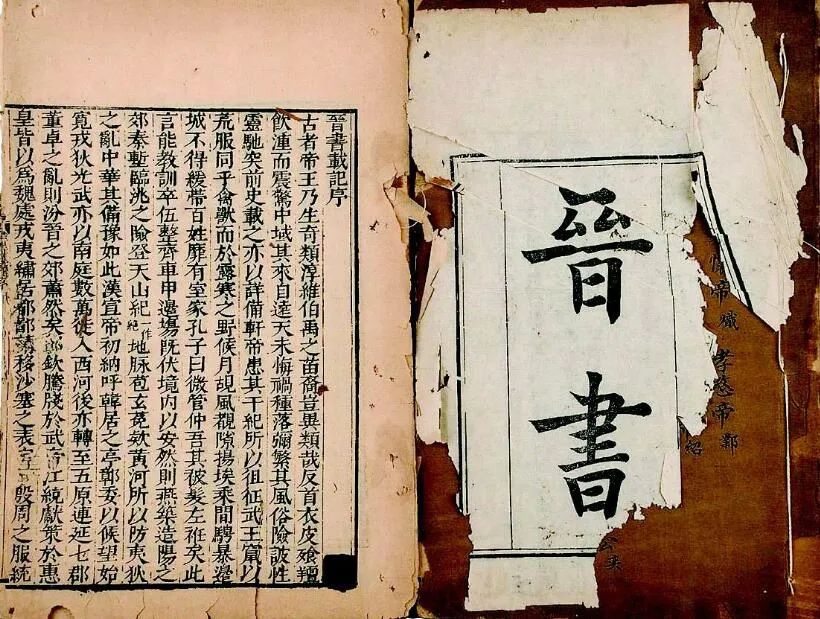 晉書
帝熾 孝愍帝鄴
紹
晉書載記序
古者帝王乃生奇類淳維伯禹之苗裔豈異類哉反首衣皮飱羶
飲湩而震驚中域其來自遠天未悔禍種落彌繁其風俗險詖性
靈馳突前史載之亦以詳備軒帝患其干紀所以徂征武王竄以
荒服同乎禽獸而於露寒之野候月覘風覩隙揚埃乘間騁暴邊
城不得緩帶百姓靡有室家孔子曰微管仲吾其被髮左衽矣此
言能教訓卒伍整齊車甲邊塲既伏境内以安然則燕築造陽之
郊秦塹臨洮之險登天山紀一作絕地脉苞玄菟欵黃河所以防夷狄
之亂中華其備豫如此漢宣帝初納呼韓居之亭鄣委以候望始
寛戎狄光武亦以南庭數萬徙入西河後亦轉至五原連延七郡
董卓之亂則汾晉之郊蕭然矣郭欽騰牋於武帝江統獻策於惠
皇皆以爲魏處戎夷繡居都鄙請移沙塞之表定一殷周之服統